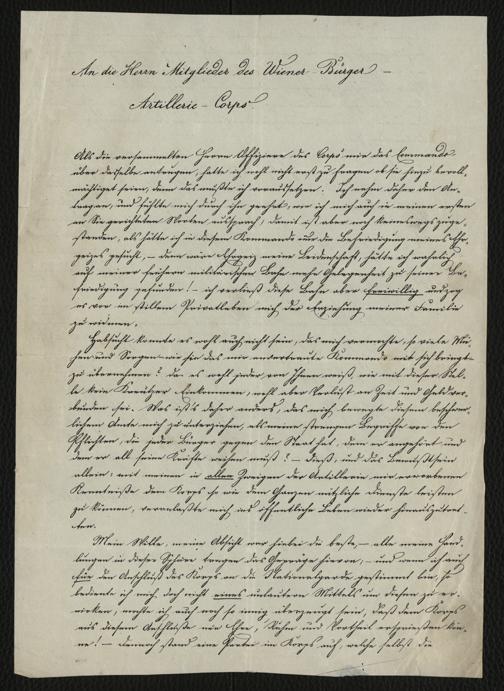 An die Herrn Mitglieder des Wiener-Bürger-
Artillerie-Corps
Als die versammelten Herrn Offiziere des Corps mir das Commando
über dasselbe antrugen, hatte ich wohl nicht erst zu fragen ob sie hiezu bevoll-
mächtiget seien, denn das mußte ich voraussetzen. Ich nahm daher den An-
trag an, und fühlte mich durch ihn geehrt, wie ich mich auch in meinen ersten
an Sie gerichteten Worten aussprach; damit ist aber noch keineswegs zuge-
standen, als hätte ich in diesem Kommando nur die Befriedigung meines Ehr-
geizes gesucht, – denn wäre Ehrgeiz meine Leidenschaft, hätte ich wahrlich
auf meiner frühern militärischen Bahn mehr Gelegenheit zu seiner Be-
friedigung gefunden! – ich verließ diese Bahn aber freiwillig und zog
es vor in stillem Privatleben mich der Erziehung meiner Familie
zu widmen.
Habsucht konnte es wohl auch nicht sein, das mich vermochte, so viele Mü-
hen und Sorgen wie sie das mir anvertraute Kommando mit sich bringt
zu übernehmen? da es wohl jeder von Ihnen weiß, wie mit dieser Stel-
le kein Kreutzer Einkommen, wohl aber Verlust an Zeit und Geld ver-
bunden sei. Was ist's daher anders, das mich bewogte diesem beschwer-
lichem Amte mich zu unterziehen, als meine strengen Begriffe von den
Pflichten, die jeder Bürger gegen den Staat hat, dem er angehört und
dem er all seine Kräfte weihen muß? – dieß, und das Bewußtsein
allein: mit meinen in allen Zweigen der Artillerie mir erworbenen
Kenntnisse dem Korps so wie dem Ganzen nützliche Dienste leisten
zu können, veranlaßte mich ins öffentliche Leben wieder hinauszutre-
ten.
Mein Wille, meine Absicht war hiebei die beste, – alle meine Hand-
lungen in dieser Sphäre tragen das Gepräge hievon, – und wenn ich auch
für den Anschluß des Korps an die Nationalgarde gestimmt bin, so
bediente ich mich doch nicht eines unlautern Mittels um diesen zu er-
wirken, mochte ich auch noch so innig überzeugt sein, daß dem Korps
aus diesem Anschluße nur Ehre, Ruhm und Vortheil ersprießen kön-
ne! – dennoch stand eine Parthei im Korps auf, welche selbst die